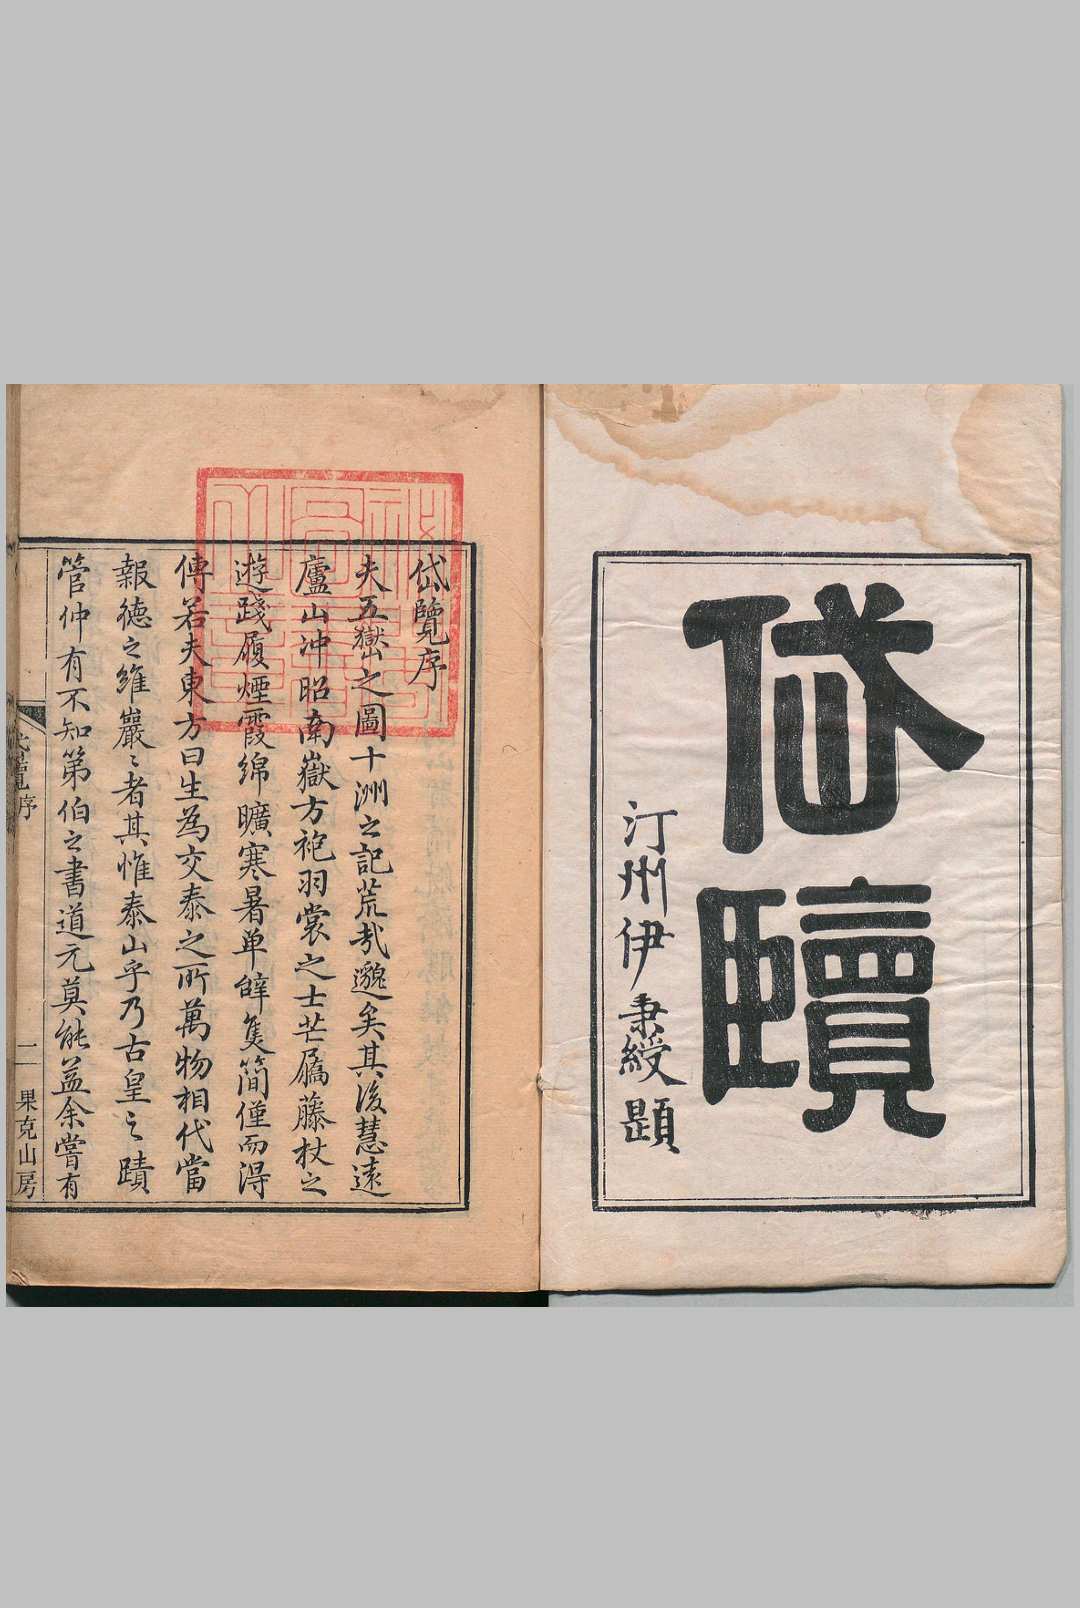 岱覽
汀州伊秉綬題
岱覽序
夫五嶽之圖十洲之記荒哉邈矣其後慧遠
廬山沖昭南嶽方袍羽裳之士芒屩藤杖之
遊踐履煙霞綿曠寒暑單辭隻簡僅而得
傳若夫東方曰生為交泰之所萬物相代當
報德之維巖〻者其惟泰山乎乃古皇之蹟
管仲有不知第伯之書道元莫能益余嘗有
岱覽序
二
果克山房